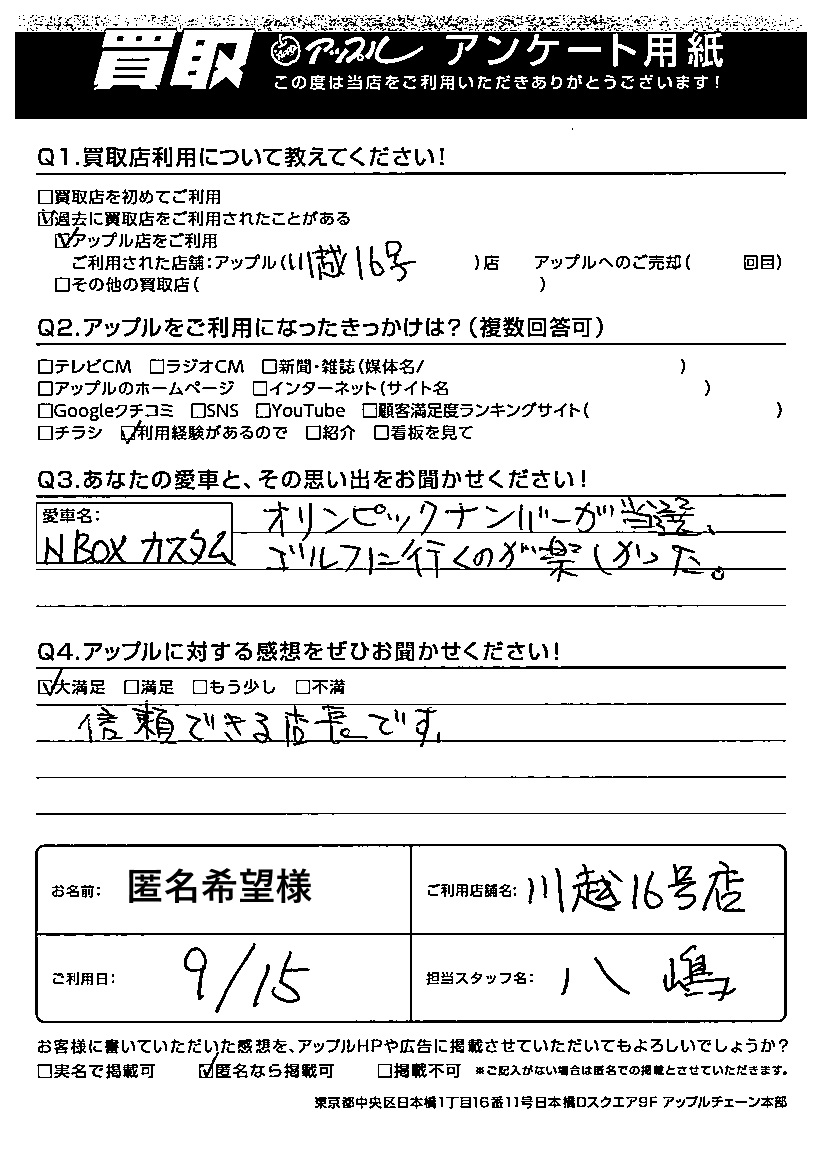 買取 アップル アンケート用紙
この度は当店をご利用いただきありがとうございます!
Q1.買取店利用について教えてください!
□買取店を初めてご利用
☑過去に買取店をご利用されたことがある
☑アップル店をご利用
ご利用された店舗:アップル(川越16号)店 アップルへのご売却( 回目)
□その他の買取店( )
Q2.アップルをご利用になったきっかけは?(複数回答可)
□テレビCM □ラジオCM □新聞・雑誌(媒体名/ )
□アップルのホームページ □インターネット(サイト名 )
□Googleクチコミ □SNS □YouTube □顧客満足度ランキングサイト( )
□チラシ ☑利用経験があるので □紹介 □看板を見て
Q3.あなたの愛車と、その思い出をお聞かせください!
愛車名:
N BOX カスタム
オリンピックナンバーが当選、
ゴルフに行くのが楽しかった。
Q4.アップルに対する感想をぜひお聞かせください!
☑大満足 □満足 □もう少し □不満
信頼できる店長です。
お名前: 匿名希望様
ご利用店舗名: 川越16号店
ご利用日: 9/15
担当スタッフ名: 八嶋
お客様に書いていただいた感想を、アップルHPや広告に掲載させていただいてもよろしいでしょうか?
□実名で掲載可 ☑匿名なら掲載可 □掲載不可 ※ご記入がない場合は匿名での掲載とさせていただきます。
東京都中央区日本橋1丁目16番11号日本橋Dスクエア9F アップルチェーン本部